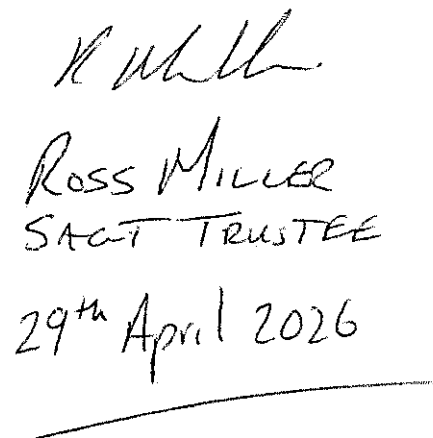 R Miller
ROSS MILLER
SAGT TRUSTEE
29th April 2026